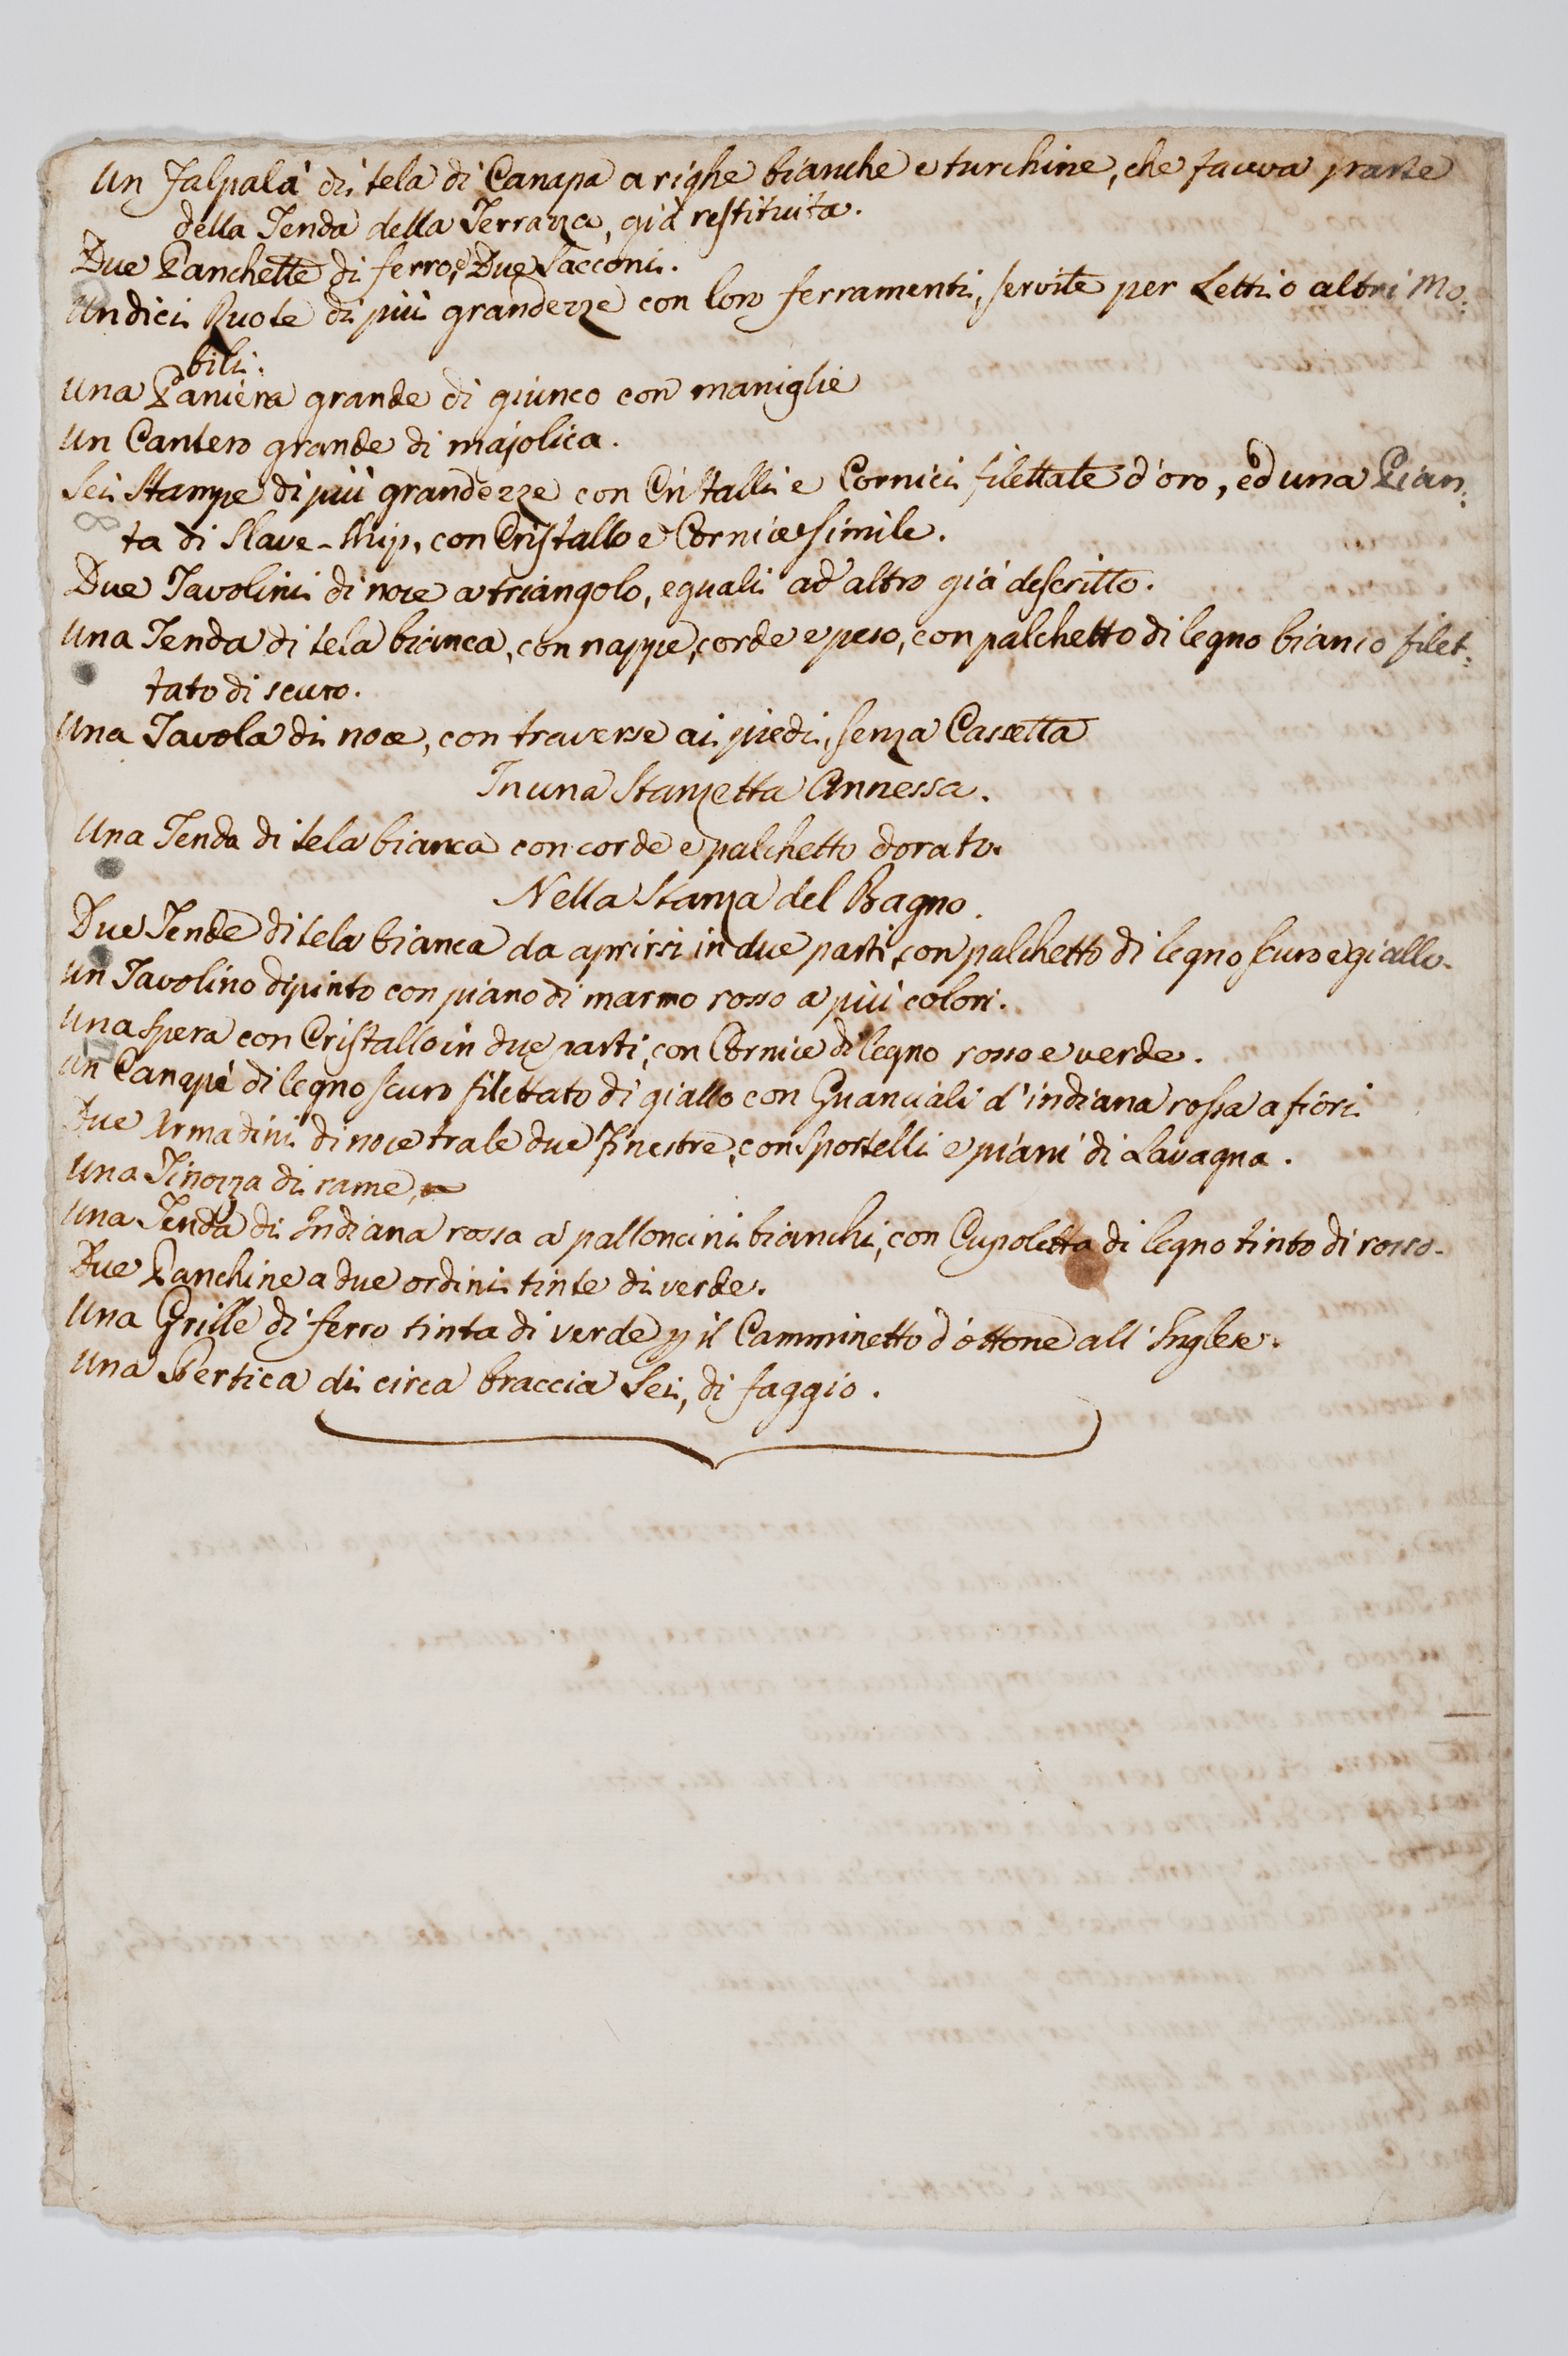 Un Falpalà di tela di Canapa a righe bianche e turchine, che faceva parte
della Tenda della Terrazza, già restituita.
Due Panchette di ferro, e Due Sacconi.
Undici Ruote di più grandezze con loro ferramenti, servite per Letti o altri Mo:
bili.
Una Paniera grande di giunco con maniglie
Un Cantero grande di majolica.
Sei Stampe di più grandezze con Cristalli e Cornici filettate d'oro, ed una Pian:
ta di Slave-Ship, con Cristallo e Cornice simile.
Due Tavolini di noce a triangolo, eguali ad altro già descritto.
Una Tenda di tela bianca, con nappe, corde e peso, con palchetto di legno bianco filet:
tato di scuro.
Una Tavola di noce, con traverse ai piedi, senza Cassetta
In una Stanzetta Annessa.
Una Tenda di tela bianca con corde e palchetto dorato.
Nella Stanza del Bagno.
Due Tende di tela bianca da aprirsi in due parti, con palchetto di legno scuro e giallo.
Un Tavolino dipinto con piano di marmo rosso a più colori.
Una Spera con Cristallo in due parti, con Cornice di legno rosso e verde.
Un Canapè di legno scuro filettato di giallo con Guanciali d'indiana rossa a fiori
Due Armadini di noce tra le due Finestre, con Sportelli e piani di Lavagna.
Una Tinozza di rame,
Una Tenda di Indiana rossa a palloncini bianchi, con Cupoletta di legno tinto di rosso.
Due Panchine a due ordini tinte di verde.
Una Grille di ferro tinta di verde p il Camminetto d'ottone all'Inglese.
Una Pertica di circa braccia Sei, di faggio.